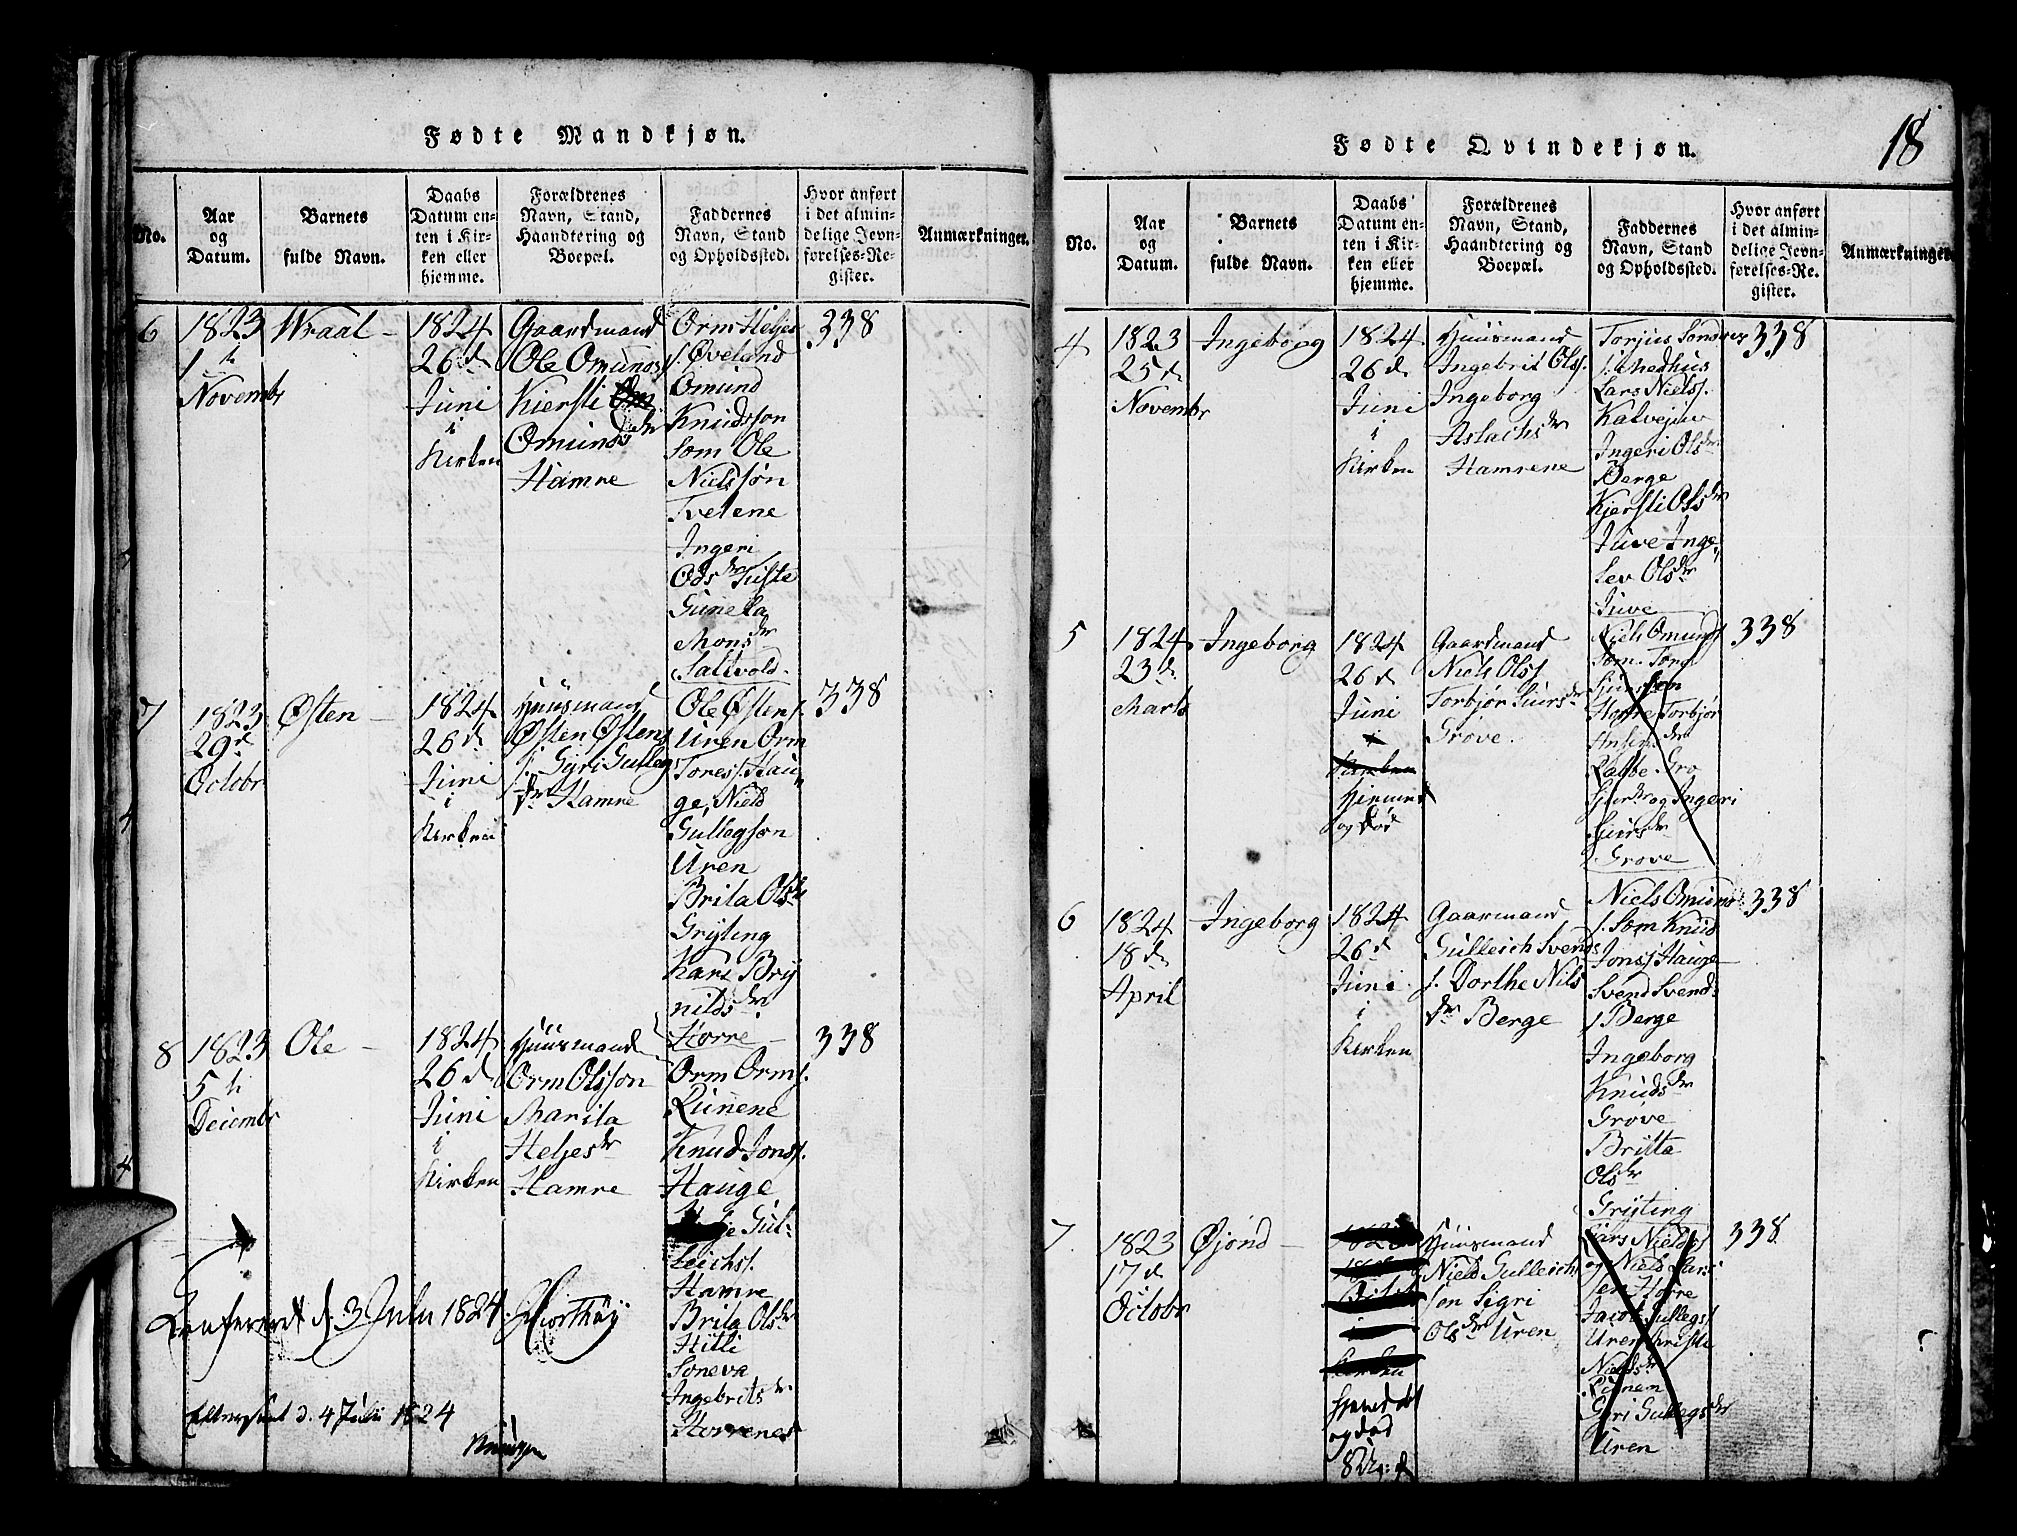 Fødte Mandkjøn.
No.
Aar
og
Datum.
Barnets
fulde Navn.
Daabs
Datum en-
ten i Kir-
ken eller
hjemme.
Forældrenes
Navn, Stand,
Haandtering og
Boepæl.
Faddernes
Navn, Stand
og Opholdssted.
Hvor anført
i det almin-
delige Jevn-
førelses-Re-
gister.
Anmærkninger.
6
1823
1
Novembr
Wraal
1824
26 d
Juni
i
Kirken
Gaardmand
Ole Omunds
Kiersti
Omunds dr
Hamre
Orm Heljes
s. Øveland
Omund
Knudsson
Som Ole
Nielssøn
Tvetene
Ingeri
Ods dr
Gunela
Mons dr
Saltvold
338
7
1823
29 d
Octobr
Østen
1824
26 d
Juni
i
Kirken
Huusmand
Østen Østens
s. Gyri Gulleg
dr Hamre
Ole Østens.
Uren Orm
Toress. Hau
ge, Niels
Gullegson
Uren
Brita Ols dr
Grytting
Kari Bry
nilds dr
Horre
338
8
1823
5
Decembr
Ole
1824
26 d
Juni
i
Kirken
Huusmand
Orm Olsson
Marita
Heljes dr
Hamre
Orm Orms.
Runene
Knud Jons.
Hauge
Gul-
leichs.
Hamre
Brita Ols dr
Hilli
Soneva
Ingebrits dr
Horrenes
338
Confereret d. 3 Julii 1824. Hierthøy
d. 4 Juli 1824
Fødte Qvindekjøn.
18
No.
Aar
og
Datum.
Barnets
fulde Navn.
Daabs
Datum en-
ten i Kir-
ken eller
hjemme.
Forældrenes
Navn, Stand,
Haandtering og
Boepæl.
Faddernes
Navn, Stand
og Opholdssted.
Hvor anført
i det almin-
delige Jevn-
førelses-Re-
gister.
Anmærkninger.
4
1823
25 d
Novembr
Ingeborg
1824
26 d
Juni
i
Kirken
Huusmand
Ingebrit Ols.
Ingeborg
Aslachs dr
Hamrene
Torjus Sondres
s. Medhus
Lars Niels.
Kalvejen
Ingeri Ols dr
Berge
Kjersti Ols dr
Juve Inge
lev Ols dr
Juve
338
5
1824
23 d
Marts
Ingeborg
1824
26 d
Juni
i
Kirken
Hiemme
og død
Gaardmand
Niels Olss
Torbjør Siurs dr
Grove.
Niels Omunds
Som Tore
Sjurson
Horre Torbjør
dr
Gro
Sjurs dr og Ingeri
Siurs dr
Grove
338
6
1824
18 d
April
Ingeborg
1824
26 d
Juni
i
Kirken
Gaarmand
Gulleich Svends
s. Dorthe Nils
dr Berge
Niels Omund
s. Som Knud
Jons. Hauge
Svend Svend
s Berge
Ingeborg
Knuds dr
Grove
Britta
Ols dr
Grytting
338
7.
1823
17 d
Octobr
Øjønd
Hjemedøbt
og død
Huusmand
Niels Gulleich
son Sigri
Ols dr Uren
Lars Niels
og Niels Lars
sen Horre
Jacob Gullegs
Uren Kirsti
Niels dr
Runen
Gyri Gullegs dr
Uren
338